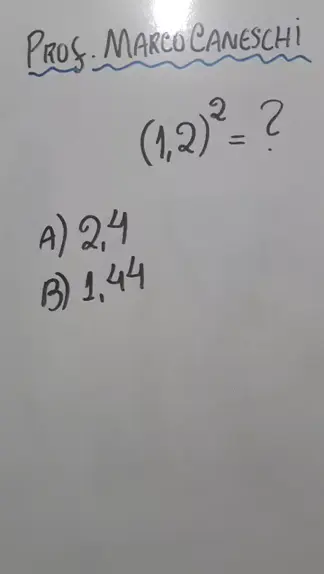 PROF. MARCO CANESCHI
(1,2)² = ?
A) 2,4
B) 1,44